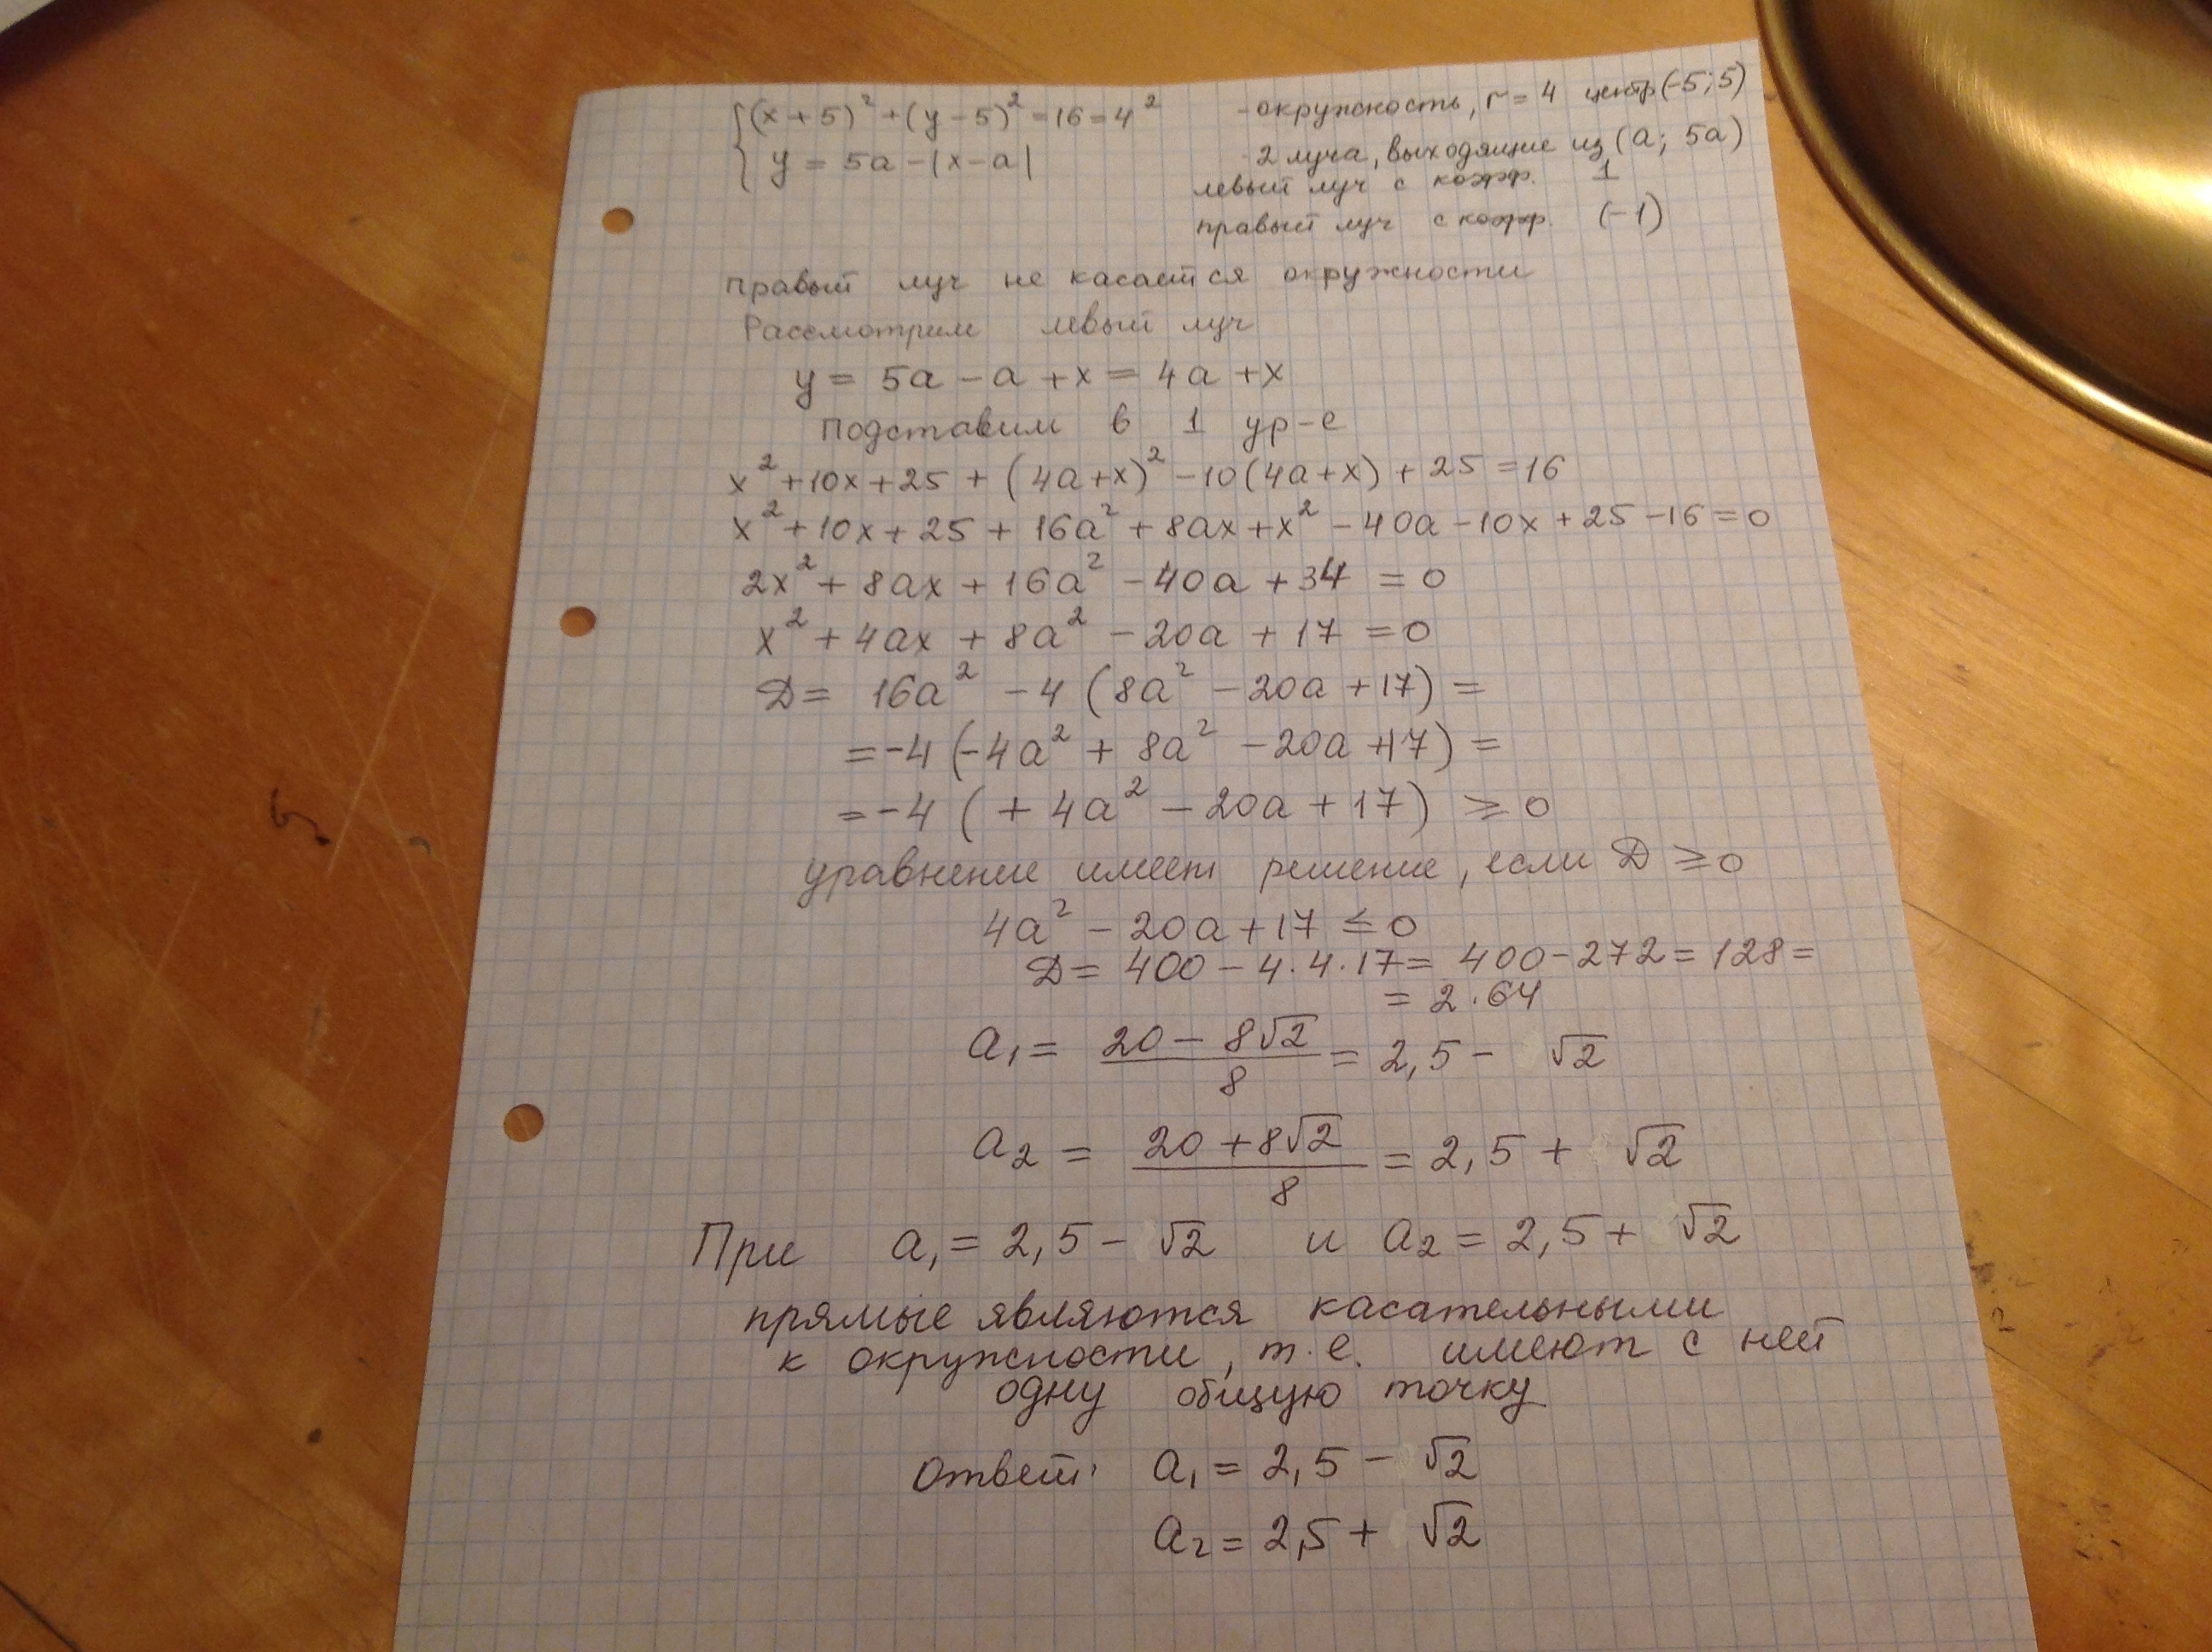 (x+5)² + (y-5)² = 16 = 4² - окружность, r = 4 центр (-5; 5)
y = 5a - |x-a| - 2 луча, выходящие из (a; 5a)
левый луч с коэфф. 1
правый луч с коэфф. (-1)
правый луч не касается окружности
Рассмотрим левый луч
y = 5a - a + x = 4a + x
подставим в 1 ур-е
x² + 10x + 25 + (4a+x)² - 10(4a+x) + 25 = 16
x² + 10x + 25 + 16a² + 8ax + x² - 40a - 10x + 25 - 16 = 0
2x² + 8ax + 16a² - 40a + 34 = 0
x² + 4ax + 8a² - 20a + 17 = 0
D = 16a² - 4 (8a² - 20a + 17) =
= -4 (-4a² + 8a² - 20a + 17) =
= -4 ( + 4a² - 20a + 17) ≥ 0
уравнение имеет решение, если D ≥ 0
4a² - 20a + 17 ≤ 0
D = 400 - 4·4·17 = 400 - 272 = 128 =
= 2·64
a₁ = (20 - 8√2)/8 = 2,5 - √2
a₂ = (20 + 8√2)/8 = 2,5 + √2
При a₁ = 2,5 - √2 и a₂ = 2,5 + √2
прямые являются касательными
к окружности, т.е. имеют с ней
одну общую точку
Ответ: a₁ = 2,5 - √2
a₂ = 2,5 + √2